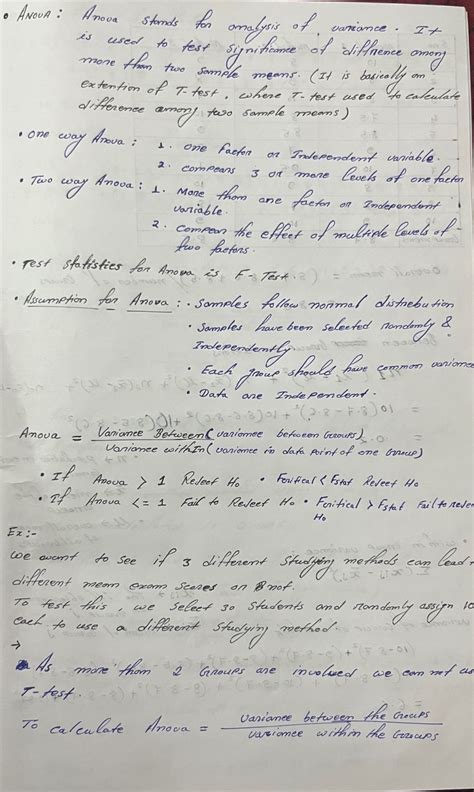 • ANOVA : Anova stands for analysis of variance. It
is used to test significance of diffrence among
more than two sample means. (It is basically an
extention of T-test, where T-test used to calculate
difference among two sample means)
• One way Anova : 1. one Factor or Independent variable.
2. compears 3 or more levels of one factor
• Two way Anova : 1. More than one factor or Independent
variable.
2. Compear the effect of multiple levels of
two factors.
• Test statistics for Anova is F-Test.
• Assumption for Anova : • Samples follow normal distrebution
• Samples have been selected randomly &
Independently
• Each group should have common variance
• Data are Independent.
Anova = Variance Between (variance between Groups)
Variance within (variance in data point of one Group)
• If Anova > 1 Reject Ho • Fcritical < Fstat Reject Ho
• If Anova <= 1 Fail to Reject Ho • Fcritical > Fstat Fail to
Ho
Ex:-
we want to see if 3 different studying methods can lead
different mean exam scores or not.
To test this, we select 30 students and randomly assign 10
each to use a different studying method.
→
As more than 2 Groups are involved we can not
T-test.
To calculate Anova = variance between the Groups
variance within the Groups